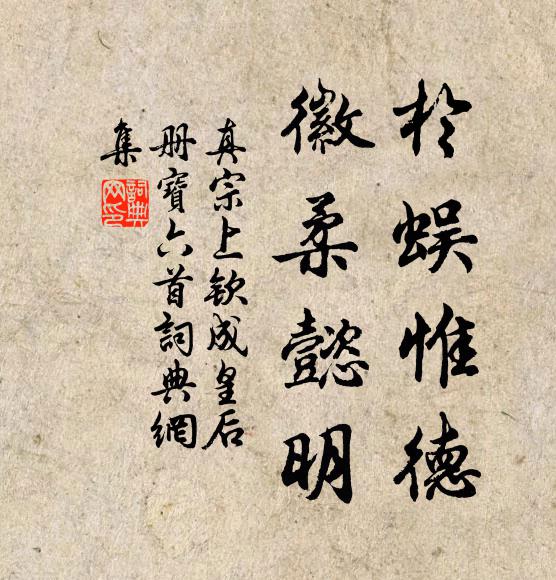 於蜈惟德
徽柔懿明
真宗上欽成皇后
册寶六首詞典網
集
詞典網印